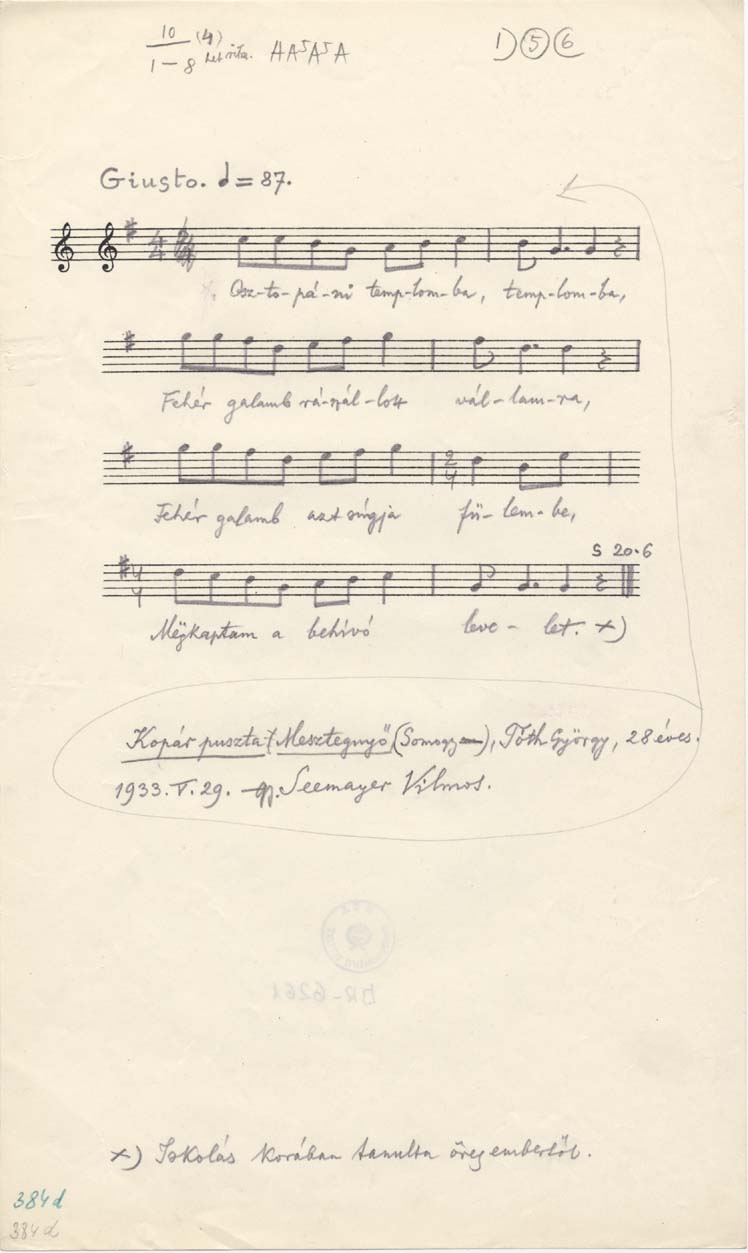 10 (4)
1–8 HA⁵A⁵A
1) 5 6
Giusto. = 87.
4/4
Osz-to-pá-ni temp-lom-ba, temp-lom-ba,
Fehér galamb rá-szál-lott vál-lam-ra,
2/4
Fehér galamb azt súgja fü-lem-be,
S 20.6
4/4
Mëgkaptam a behívó leve-let. x)
Kopár puszta Mesztegnyő (Somogy), Tóth György, 28 éves.
1933. V. 29. gy. Seemayer Vilmos.
BR-6261
x) Iskolás korában tanulta öreg embertől.
384d
384d